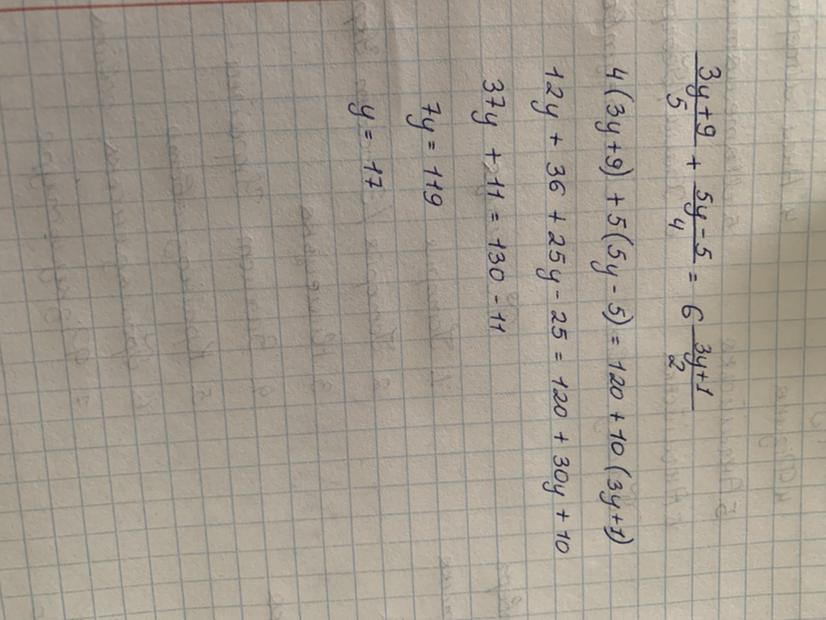 (3y+9)/5 + (5y-5)/4 = 6 (3y+1)/2
4(3y+9) + 5(5y-5) = 120 + 10(3y+1)
12y + 36 + 25y - 25 = 120 + 30y + 10
37y + 11 = 130 - 11
7y = 119
y = 17